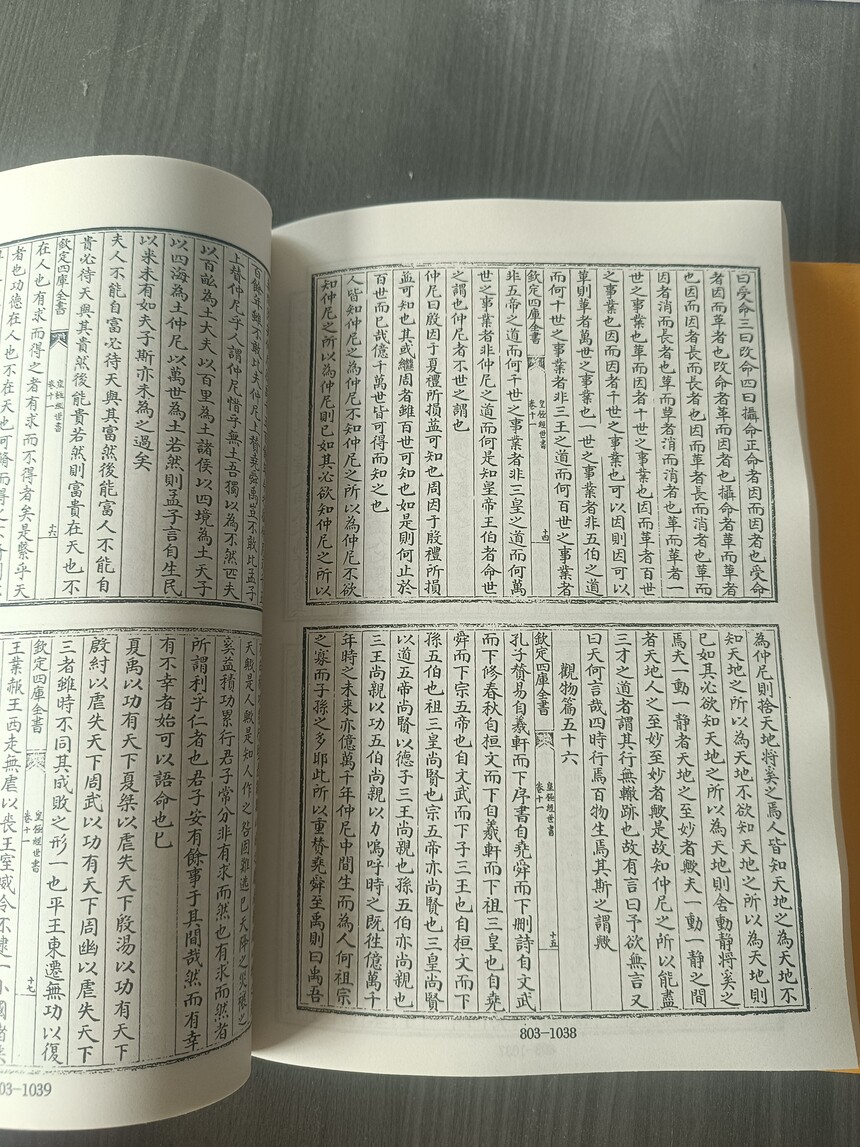 曰受命三曰改命四曰攝命正命者因而因者也受命
者因而革者也改命者革而因者也攝命者革而革者
也因而因者長而長者也因而革者長而消者也革而
因者消而長者也革而革者消而消者也革而革者一
世之事業也革而因者十世之事業也因而革者百世
之事業也因而因者千世之事業也可以因則因可以
革則革者萬世之事業也一世之事業者非五伯之道
而何十世之事業者非三王之道而何百世之事業者
欽定四庫全書
皇極經世書
卷十一
十四
非五帝之道而何千世之事業者非三皇之道而何萬
世之事業者非仲尼之道而何是知皇帝王伯者命世
之謂也仲尼者不世之謂也
仲尼曰殷因于夏禮所損益可知也周因于殷禮所損
益可知也其或繼周者雖百世可知也如是則何止於
百世而已哉億千萬世皆可得而知之也
人皆知仲尼之為仲尼不知仲尼之所以為仲尼不欲
知仲尼之所以為仲尼則已如其必欲知仲尼之所以
為仲尼則捨天地將奚之焉人皆知天地之為天地不
知天地之所以為天地不欲知天地之所以為天地則
已如其必欲知天地之所以為天地則舍動静將奚之
焉夫一動一静者天地之至妙者歟夫一動一静之間
者天地人之至妙至妙者歟是故知仲尼之所以能盡
三才之道者謂其行無轍跡也故有言曰予欲無言又
曰天何言哉四時行焉百物生焉其斯之謂歟
觀物篇五十六
欽定四庫全書
皇極經世書
卷十一
十五
孔子賛易自羲軒而下序書自堯舜而下删詩自文武
而下修春秋自桓文而下自羲軒而下祖三皇也自堯
舜而下宗五帝也自文武而下子三王也自桓文而下
孫五伯也祖三皇尚賢也宗五帝亦尚賢也三皇尚賢
以道五帝尚賢以德子三王尚親也孫五伯亦尚親也
三王尚親以功五伯尚親以力嗚呼時之既徃億萬千
年時之未來亦億萬千年仲尼中間生而為人何祖宗
之寡而子孫之多耶此所以重賛堯舜至禹則曰禹吾
803-1038
百餘年雖不敢比夫仲尼上賛堯舜禹豈不敢比孟子
上賛仲尼乎人謂仲尼惜乎無土吾獨以為不然匹夫
以百畝為土大夫以百里為土諸侯以四境為土天子
以四海為土仲尼以萬世為土若然則孟子言自生民
以來未有如夫子斯亦未為之過矣
夫人不能自富必待天與其富然後能富人不能自
貴必待天與其貴然後能貴若然則富貴在天也不
欽定四庫全書
皇極經世書
卷十一
十六
在人也有求而得之者有求而不得者矣是繫乎天
者也功德在人也不在天也可脩而得之
天歟是人歟是知人作之咎固難逃已天降之災禳之
奚益積功累行君子常分非有求而然也有求而然者
所謂利乎仁者也君子安有餘事于其間哉然而有幸
有不幸者始可以語命也已
夏禹以功有天下夏桀以虐失天下殷湯以功有天下
殷紂以虐失天下周武以功有天下周幽以虐失天下
三者雖時不同其成敗之形一也平王東遷無功以復
欽定四庫全書
皇極經世書
卷十一
十七
王業赧王西走無虐以喪王室威令不逮一小國諸侯
03-1039